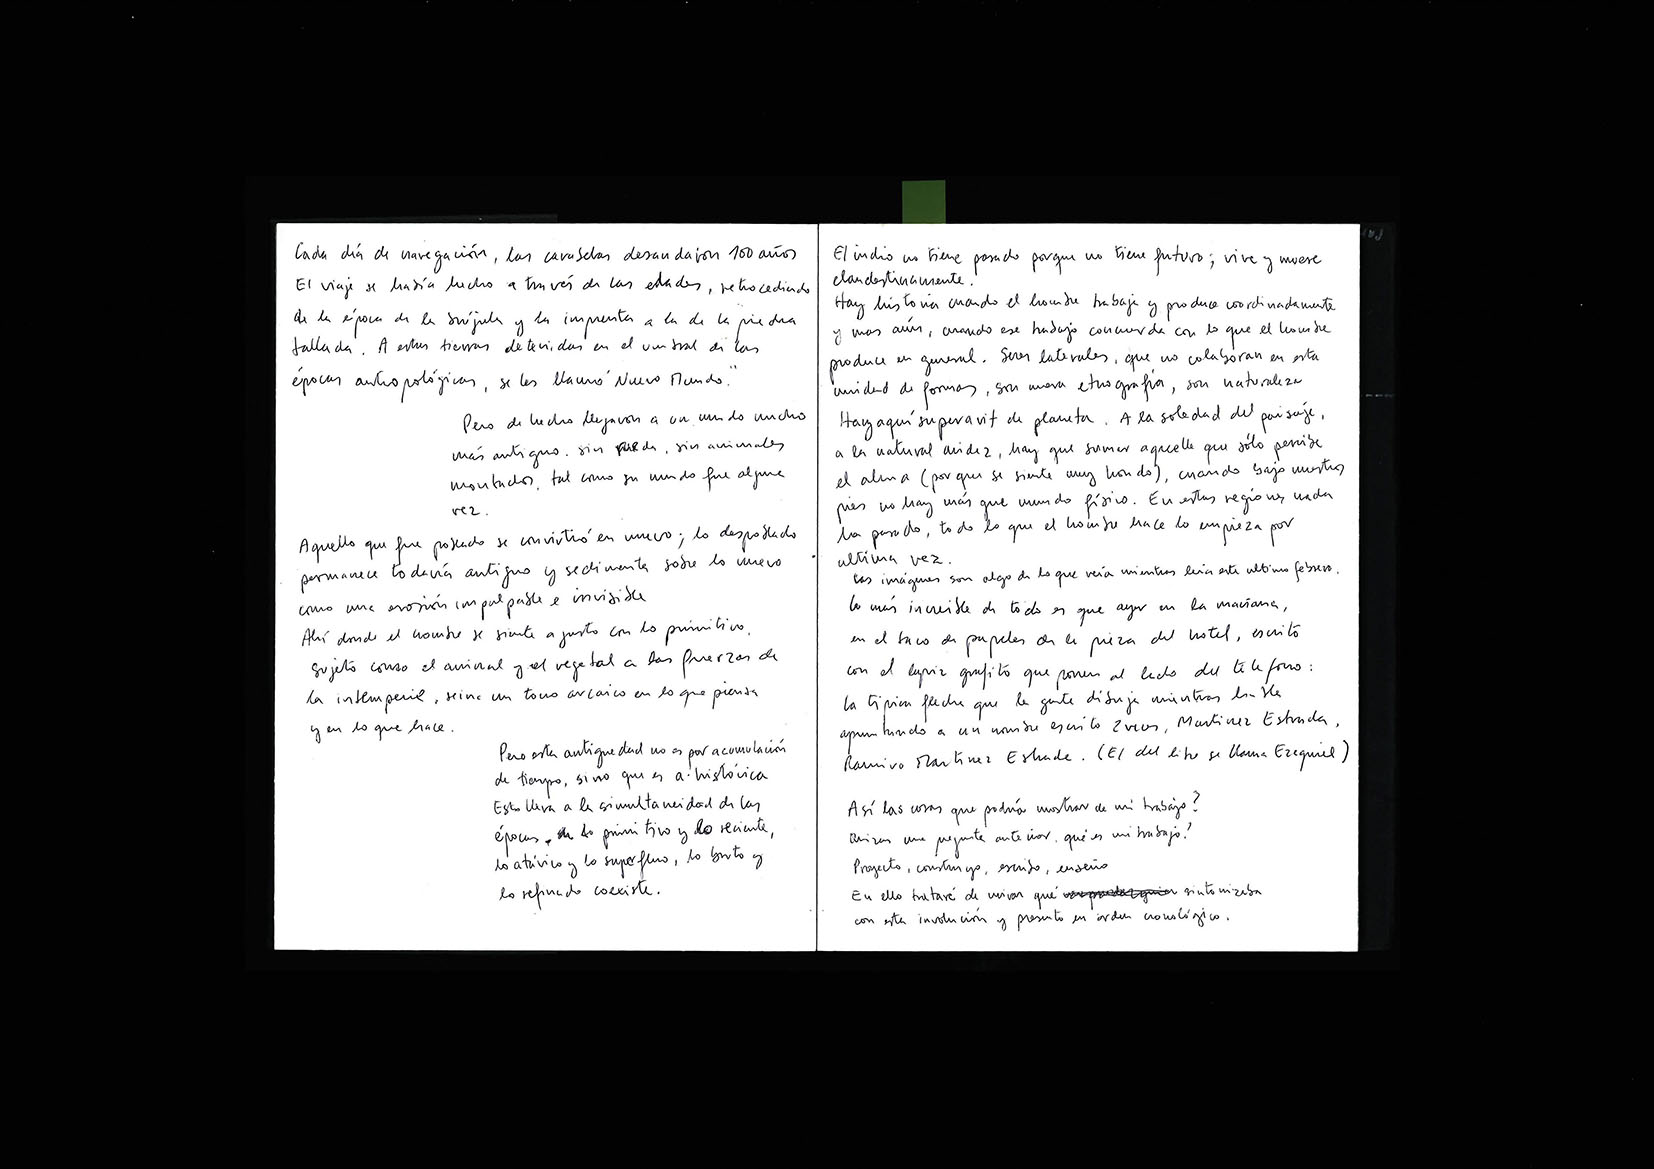 Cada día de navegación, las carabelas desandaron 100 años
El viaje se había hecho a través de las edades, retrocediendo
de la época de la brújula y la imprenta a la de la piedra
tallada. A estas tierras detenidas en el umbral de las
épocas antropológicas, se les llamó "Nuevo Mundo."
Pero de hecho llegaron a un mundo mucho
más antiguo. sin rueda, sin animales
montados, tal como su mundo fue alguna
vez.
Aquello que fue poblado se convirtió en nuevo; lo despoblado
permanece todavía antiguo y sedimenta sobre lo nuevo
como una erosión impalpable e invisible
Ahí donde el hombre se siente a gusto con lo primitivo,
sujeto como el animal y el vegetal a las fuerzas de
la intemperie, reina un tono arcaico en lo que piensa
y en lo que hace.
Pero esta antiguedad no es por acumulación
de tiempo, sino que es a-histórica
Esto lleva a la simultaneidad de las
épocas. lo primitivo y lo reciente,
lo atávico y lo superfluo, lo bruto y
lo refinado coexiste.
El indio no tiene pasado porque no tiene futuro; vive y muere
clandestinamente.
Hay historia cuando el hombre trabaja y produce coordinadamente
y mas aún, cuando ese trabajo concuerda con lo que el hombre
produce en general. Seres laterales, que no colaboran en esta
unidad de formas, son mera etnografía, son naturaleza
Hay aquí superavit de planeta. A la soledad del paisaje,
a la natural aridez, hay que sumar aquella que sólo percibe
el alma (porque se siente muy hondo), cuando bajo nuestros
pies no hay más que mundo físico. En estas regiones nada
ha pasado, todo lo que el hombre hace lo empieza por
ultima vez.
Las imágenes son algo de lo que veía mientras leía este ultimo febrero.
Lo más increible de todo es que ayer en la mañana,
en el taco de papeles de la pieza del hotel, escrito
con el lapiz grafito que ponen al lado del teléfono:
la tipica flecha que la gente dibuja mientras habla
apuntando a un nombre escrito 2 veces, Martinez Estrada,
Ramiro Martinez Estrada. (El del libro se llama Ezequiel)
Así las cosas que podría mostrar de mi trabajo?
Quizas una pregunta anterior. qué es mi trabajo?
Proyecto, construyo, escribo, enseño
En ello trataré de mirar qué sintonizaba
con esta involución y presento en orden cronológico.